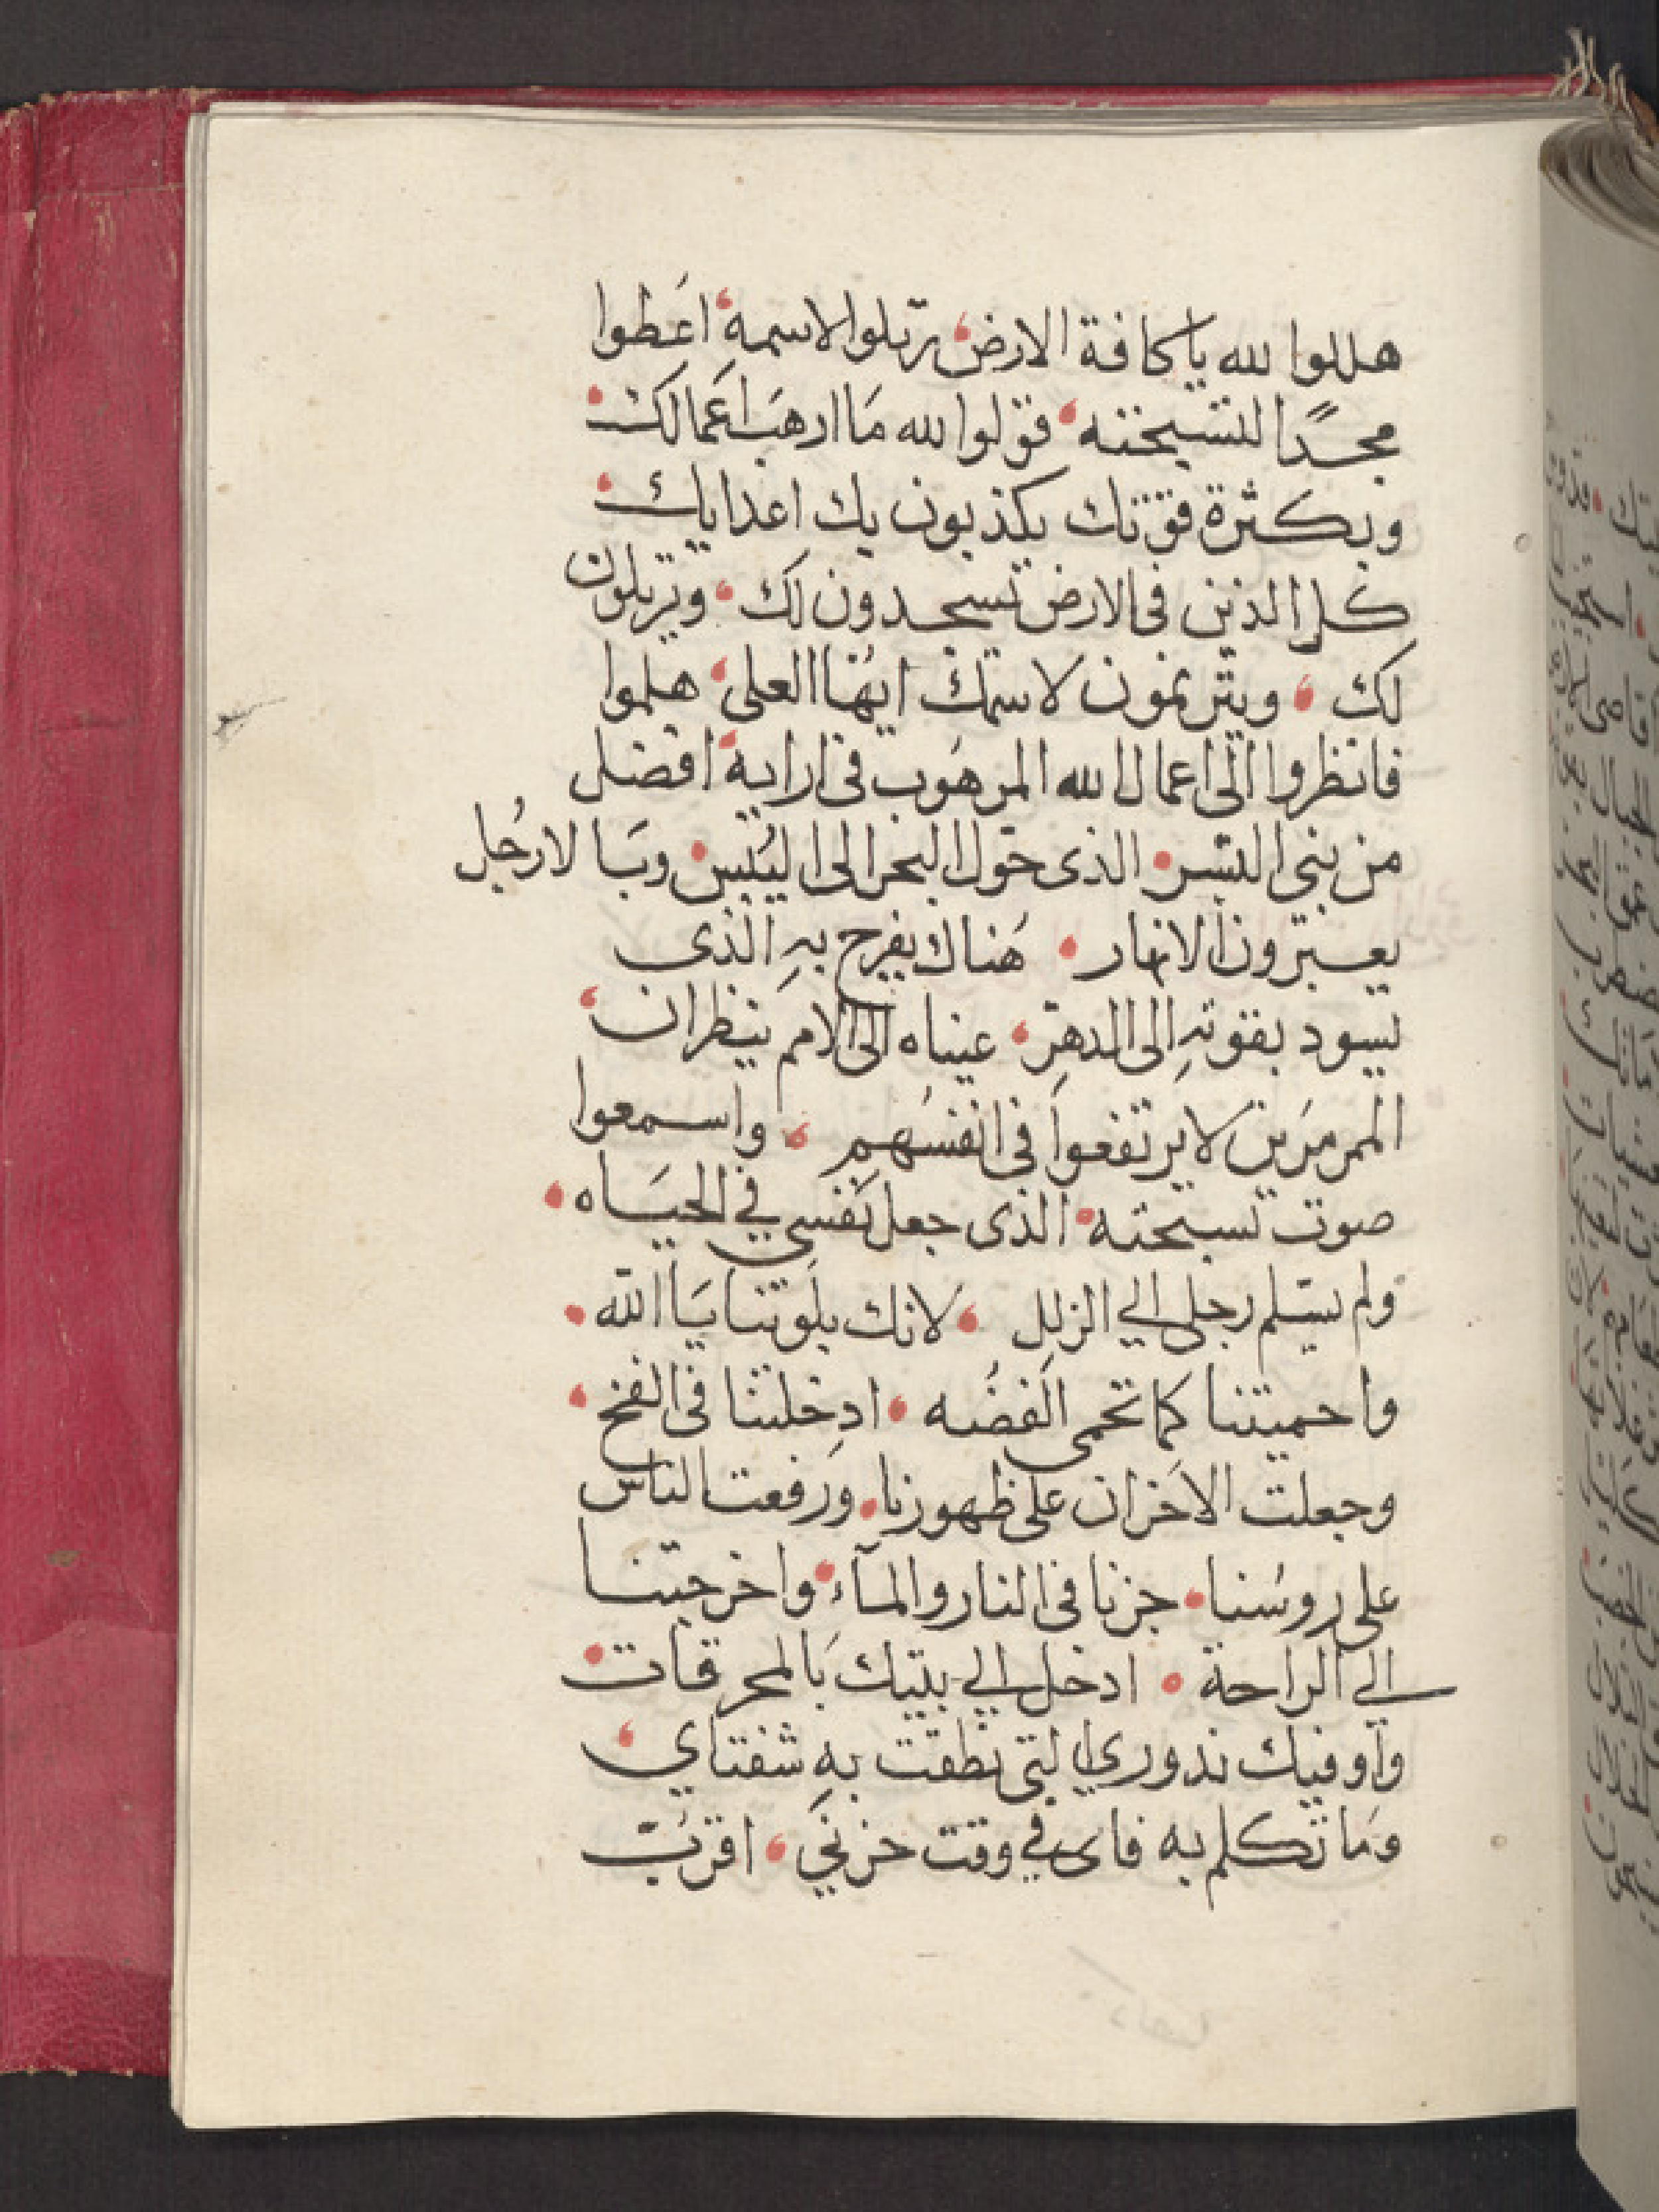 هللوا لله يا كافة الارض، رتلوا لاسمه، اعَطوا
مجدًا لتسبحته، قولوا لله مَا ارهبَ اعَمالك.
وبكثرة قوّتك يكذبون بك اعدايك.
كل الذين فى الارض تسجدون لك. ويرتلون
لك. ويترنمون لاسمك ايُها العلى، هلموا
فانظروا الى اعمال الله المرهُوب فى ارايه، افضل
من بنى البشر. الذى حَوّل البحر الى اليُبس. وبَالارجُل
يعبرون الانهار. هُناك يفرح بهِ الذى
يسود بقوتهِ الى الدهر. عيناه الى الامم ينظران،
الممرمرَين لا يرتفعوا فى انفسُهم. واسمعوا
صوت تسبحته. الذى جعل نَفسي في الحيَاه.
ولم يسّلم رجلى الي الزلل. لانك بلَوتنا يَا الله.
واحميتنا كما تحمى الفضُه. ادخلتنا فى الفخ.
وجعلت الاحزان على ظهورنا. ورَفعت الناس
على روسُنا. جزنا فى النار والمآء. واخرجتنا
الي الراحة. ادخل الي بيتك بَالمحرقات.
وآوفيك ندوري التى نطقت بهِ شفتاي،
ومَا تكلم به فاى في وقت حزني، اقربّ